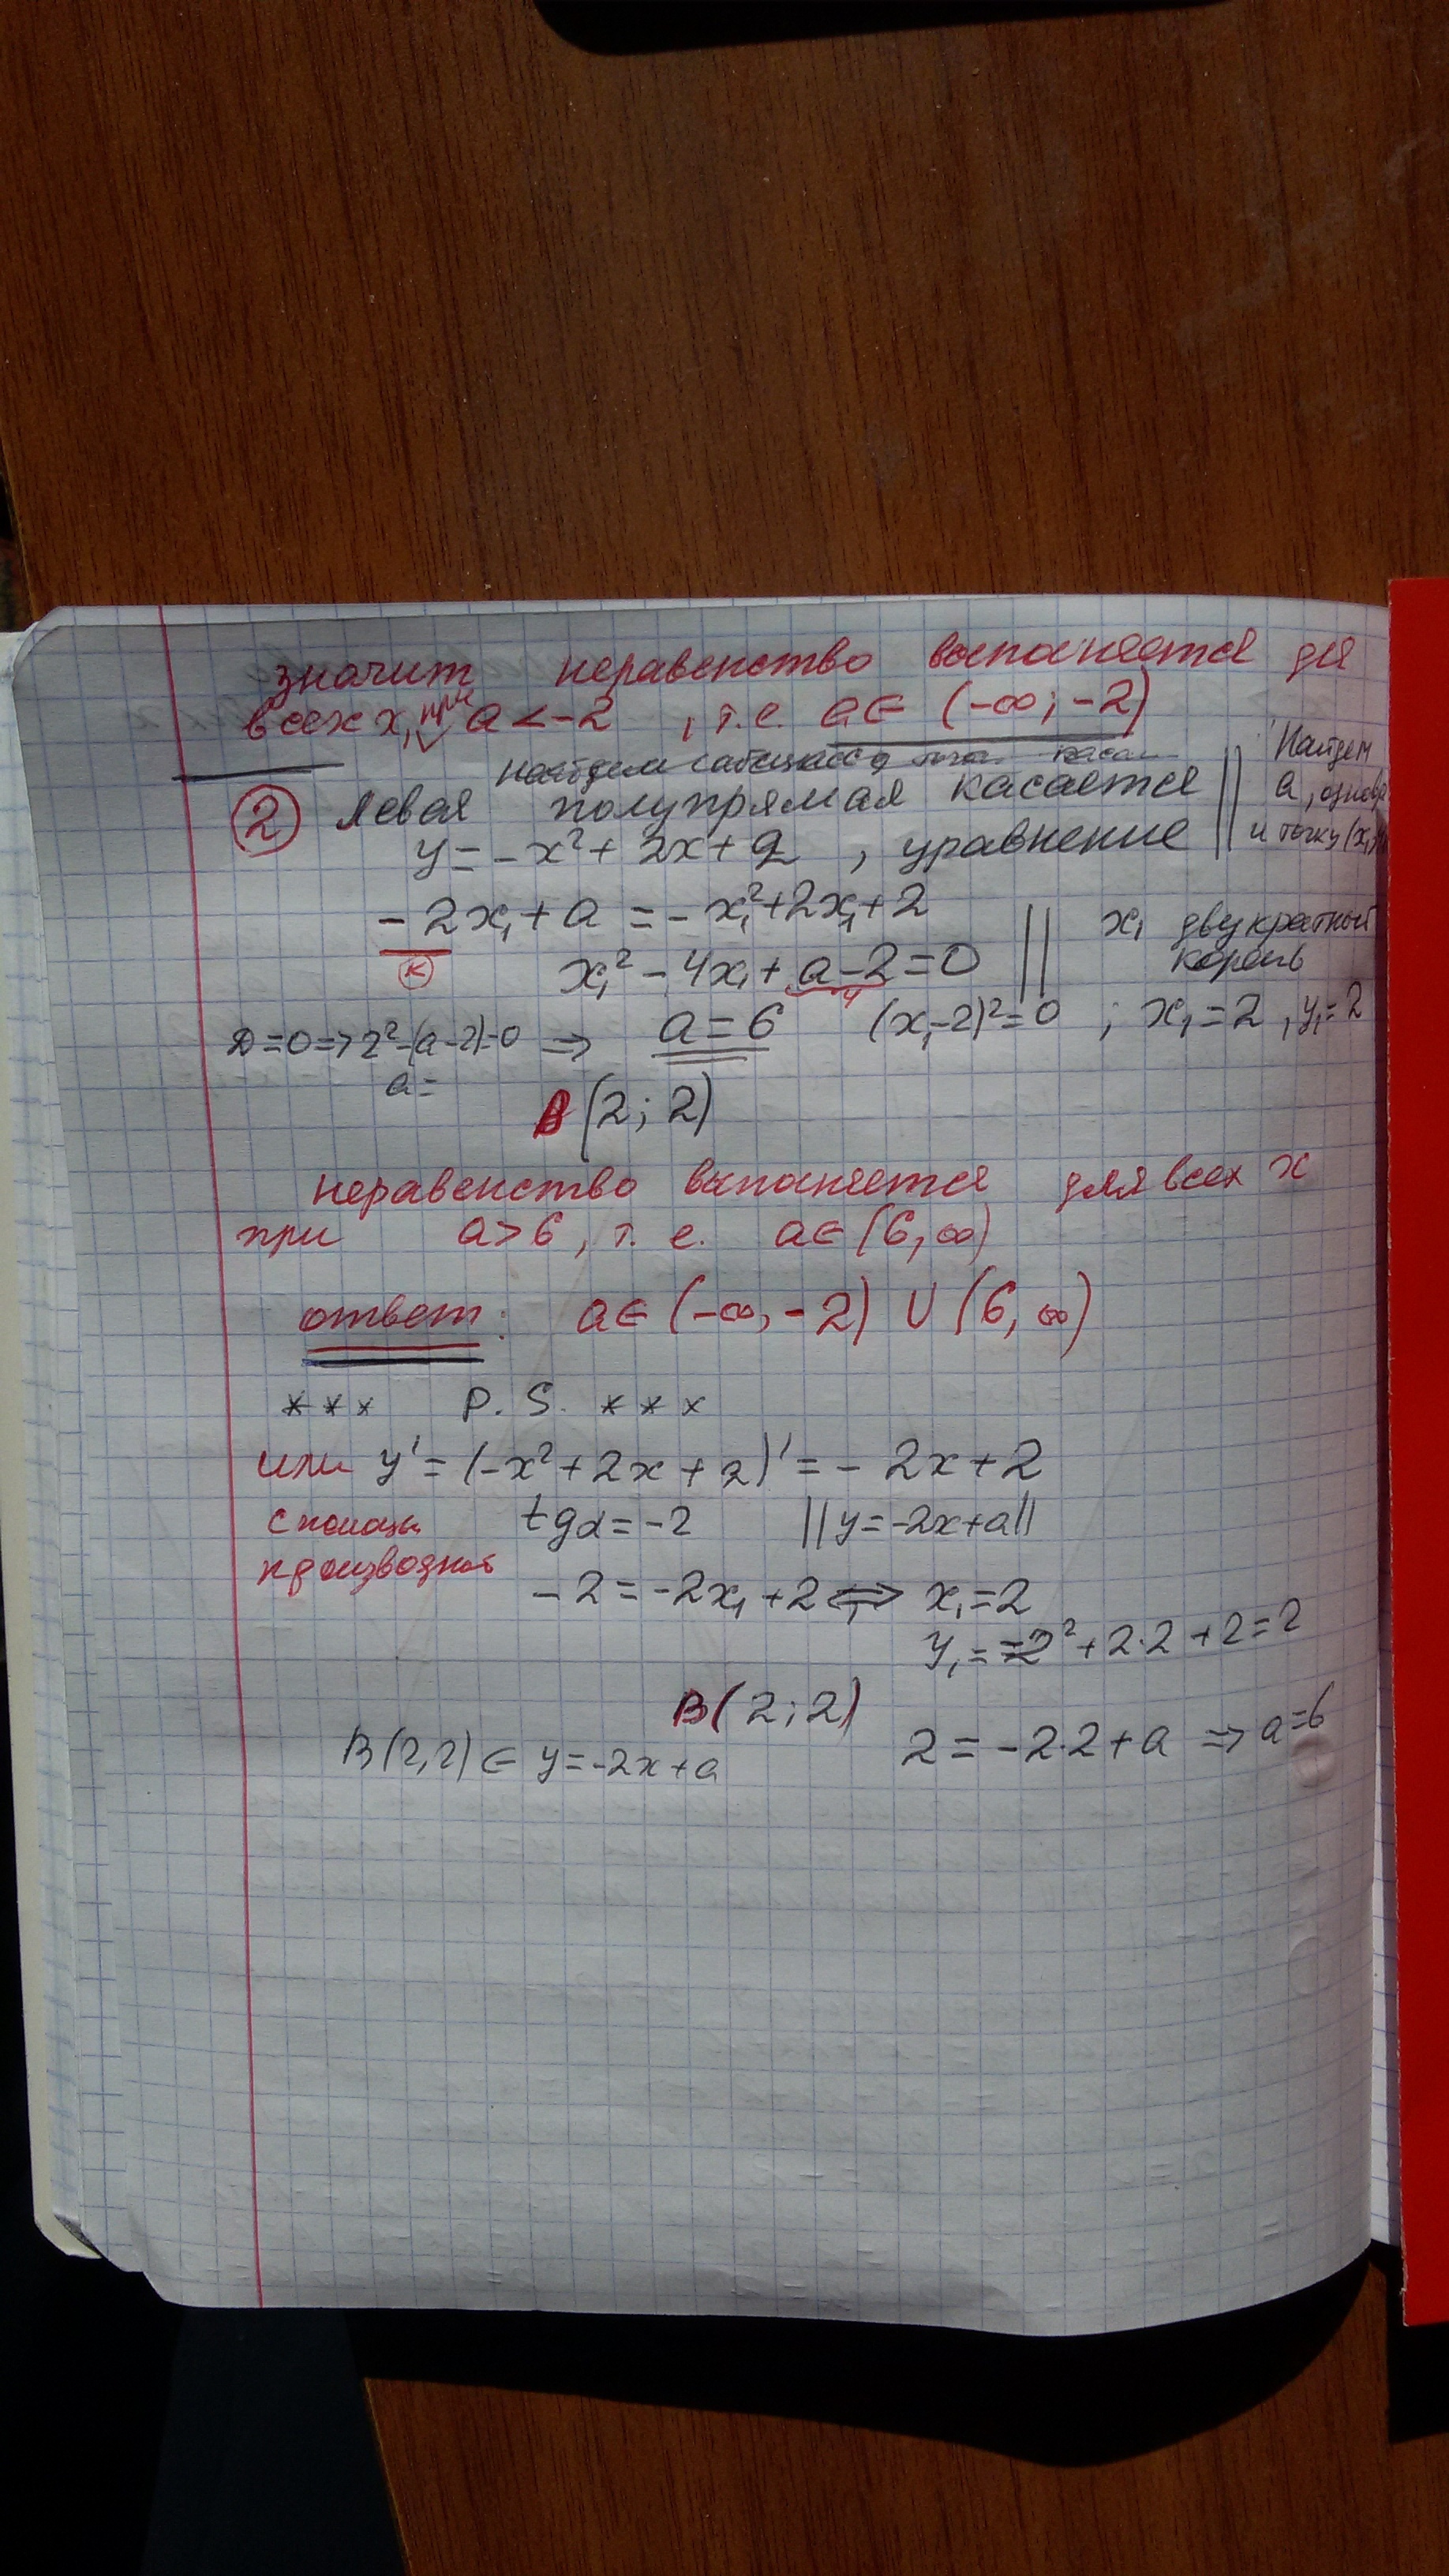 значит неравенство выполняется для
всех x, при a < -2, т.е. a ∈ (-∞; -2)
найдем абсциссу
② Левая полупрямая касается
y = -x² + 2x + 2, уравнение
Найдем
a,
и точку (x₁
-2x₁ + a = -x₁² + 2x₁ + 2
к
x₁² - 4x₁ + a - 2 = 0
4
x₁ двукратный
корень
D = 0 => 2² - (a - 2) = 0 => a = 6 (x₁ - 2)² = 0 ; x₁ = 2, y₁ = 2
a =
B (2; 2)
неравенство выполняется для всех x
при a > 6, т. е. a ∈ (6, ∞)
ответ: a ∈ (-∞, -2) ∪ (6, ∞)
*** P. S. ***
или y' = (-x² + 2x + 2)' = -2x + 2
с помощью tgα = -2 || y = -2x + a ||
производной
-2 = -2x₁ + 2 <=> x₁ = 2
y₁ = -2² + 2·2 + 2 = 2
B (2; 2)
B(2,2) ∈ y = -2x + a
2 = -2·2 + a => a = 6